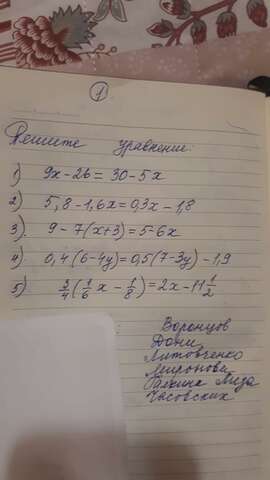 1
Решите уравнение:
1) 9x - 26 = 30 - 5x
2) 5,8 - 1,6x = 0,3x - 1,8
3) 9 - 7(x+3) = 5 - 6x
4) 0,4(6-4y) = 0,5(7-3y) - 1,9
5) 3/4 (1/6 x - 1/8) = 2x - 11 1/2
Воронцов
Дони
Литовченко
Миронова
Галкина Лиза
Часовских